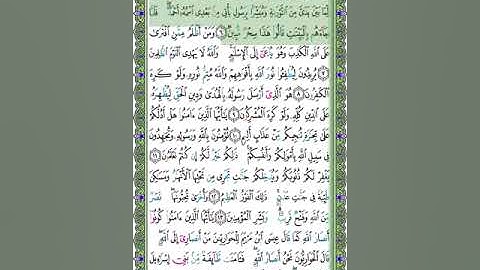 لِّمَا بَيْنَ يَدَيَّ مِنَ التَّوْرَىٰةِ وَمُبَشِّرًا بِرَسُولٍ يَأْتِي مِنْ بَعْدِي اسْمُهُ أَحْمَدُ ۖ فَلَمَّا
جَاءَهُم بِالْبَيِّنَٰتِ قَالُوا هَٰذَا سِحْرٌ مُّبِينٌ ﴿٦﴾ وَمَنْ أَظْلَمُ مِمَّنِ افْتَرَىٰ
عَلَى اللَّهِ الْكَذِبَ وَهُوَ يُدْعَىٰ إِلَى الْإِسْلَٰمِ ۚ وَاللَّهُ لَا يَهْدِي الْقَوْمَ الظَّٰلِمِينَ
﴿٧﴾ يُرِيدُونَ لِيُطْفِئُوا نُورَ اللَّهِ بِأَفْوَٰهِهِمْ وَاللَّهُ مُتِمُّ نُورِهِ وَلَوْ كَرِهَ
الْكَٰفِرُونَ ﴿٨﴾ هُوَ الَّذِي أَرْسَلَ رَسُولَهُ بِالْهُدَىٰ وَدِينِ الْحَقِّ لِيُظْهِرَهُ
عَلَى الدِّينِ كُلِّهِ وَلَوْ كَرِهَ الْمُشْرِكُونَ ﴿٩﴾ يَٰأَيُّهَا الَّذِينَ ءَامَنُوا هَلْ أَدُلُّكُمْ
عَلَىٰ تِجَٰرَةٍ تُنجِيكُم مِّنْ عَذَابٍ أَلِيمٍ ﴿١٠﴾ تُؤْمِنُونَ بِاللَّهِ وَرَسُولِهِ وَتُجَٰهِدُونَ
فِي سَبِيلِ اللَّهِ بِأَمْوَٰلِكُمْ وَأَنفُسِكُمْ ۚ ذَٰلِكُمْ خَيْرٌ لَّكُمْ إِن كُنتُمْ تَعْلَمُونَ ﴿١١﴾
يَغْفِرْ لَكُمْ ذُنُوبَكُمْ وَيُدْخِلْكُمْ جَنَّٰتٍ تَجْرِي مِن تَحْتِهَا الْأَنْهَٰرُ وَمَسَٰكِنَ
طَيِّبَةً فِي جَنَّٰتِ عَدْنٍ ۚ ذَٰلِكَ الْفَوْزُ الْعَظِيمُ ﴿١٢﴾ وَأُخْرَىٰ تُحِبُّونَهَا ۖ نَصْرٌ
مِّنَ اللَّهِ وَفَتْحٌ قَرِيبٌ ۗ وَبَشِّرِ الْمُؤْمِنِينَ ﴿١٣﴾ يَٰأَيُّهَا الَّذِينَ ءَامَنُوا كُونُوا
أَنصَارَ اللَّهِ كَمَا قَالَ عِيسَى ابْنُ مَرْيَمَ لِلْحَوَارِيِّينَ مَنْ أَنصَارِي إِلَى اللَّهِ ۖ
قَالَ الْحَوَارِيُّونَ نَحْنُ أَنصَارُ اللَّهِ ۖ فَـَٔامَنَت طَّائِفَةٌ مِّن بَنِي إِسْرَٰءِيلَ